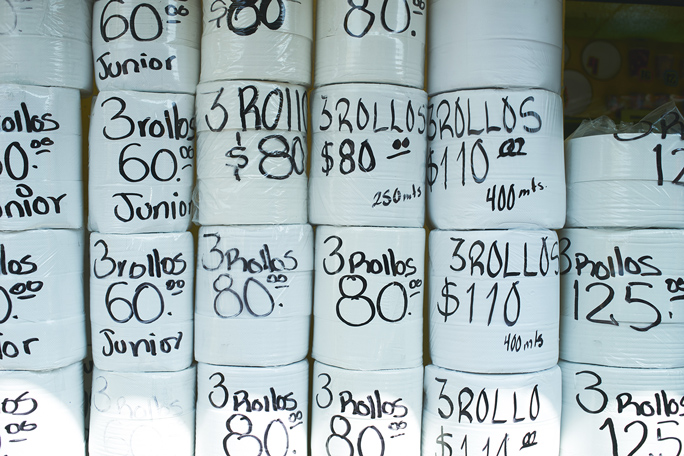 60.00
Junior
$80
80.
ollos
0.00
nior
3rollos
60.00
Junior
3 ROLL
$80
3ROLLOS
$80 00
250 mts
3ROLLOS
$110 00
400 mts.
12
llos
0.00
ior
3rollos
60.00
Junior
3Rollos
80.00
3 Rollos
80.00
3ROLLOS
$110
400 mts
3Rollos
125.00
os
3 Rollos
80.00
3 Rollos
80.00
3ROLLO
3 Rollos
125